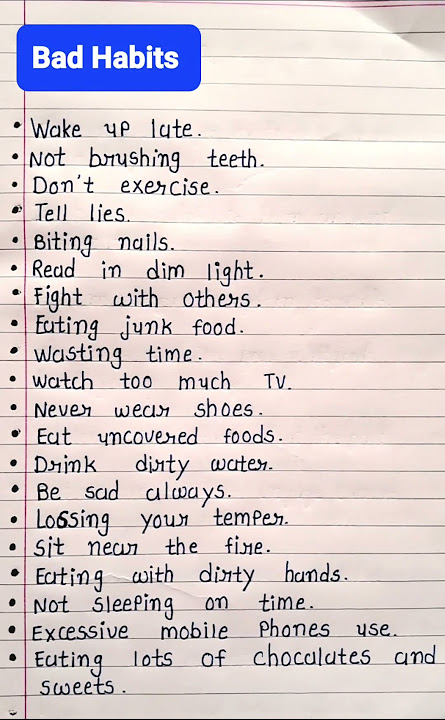 Bad Habits
• Wake up late.
• Not brushing teeth.
• Don't exercise.
• Tell lies.
• Biting nails.
• Read in dim light.
• Fight with others.
• Eating junk food.
• Wasting time.
• Watch too much TV.
• Never wear shoes.
• Eat uncovered foods.
• Drink dirty water.
• Be sad always.
• Lossing your temper.
• Sit near the fire.
• Eating with dirty hands.
• Not sleeping on time.
• Excessive mobile Phones use.
• Eating lots of chocalates and
sweets.